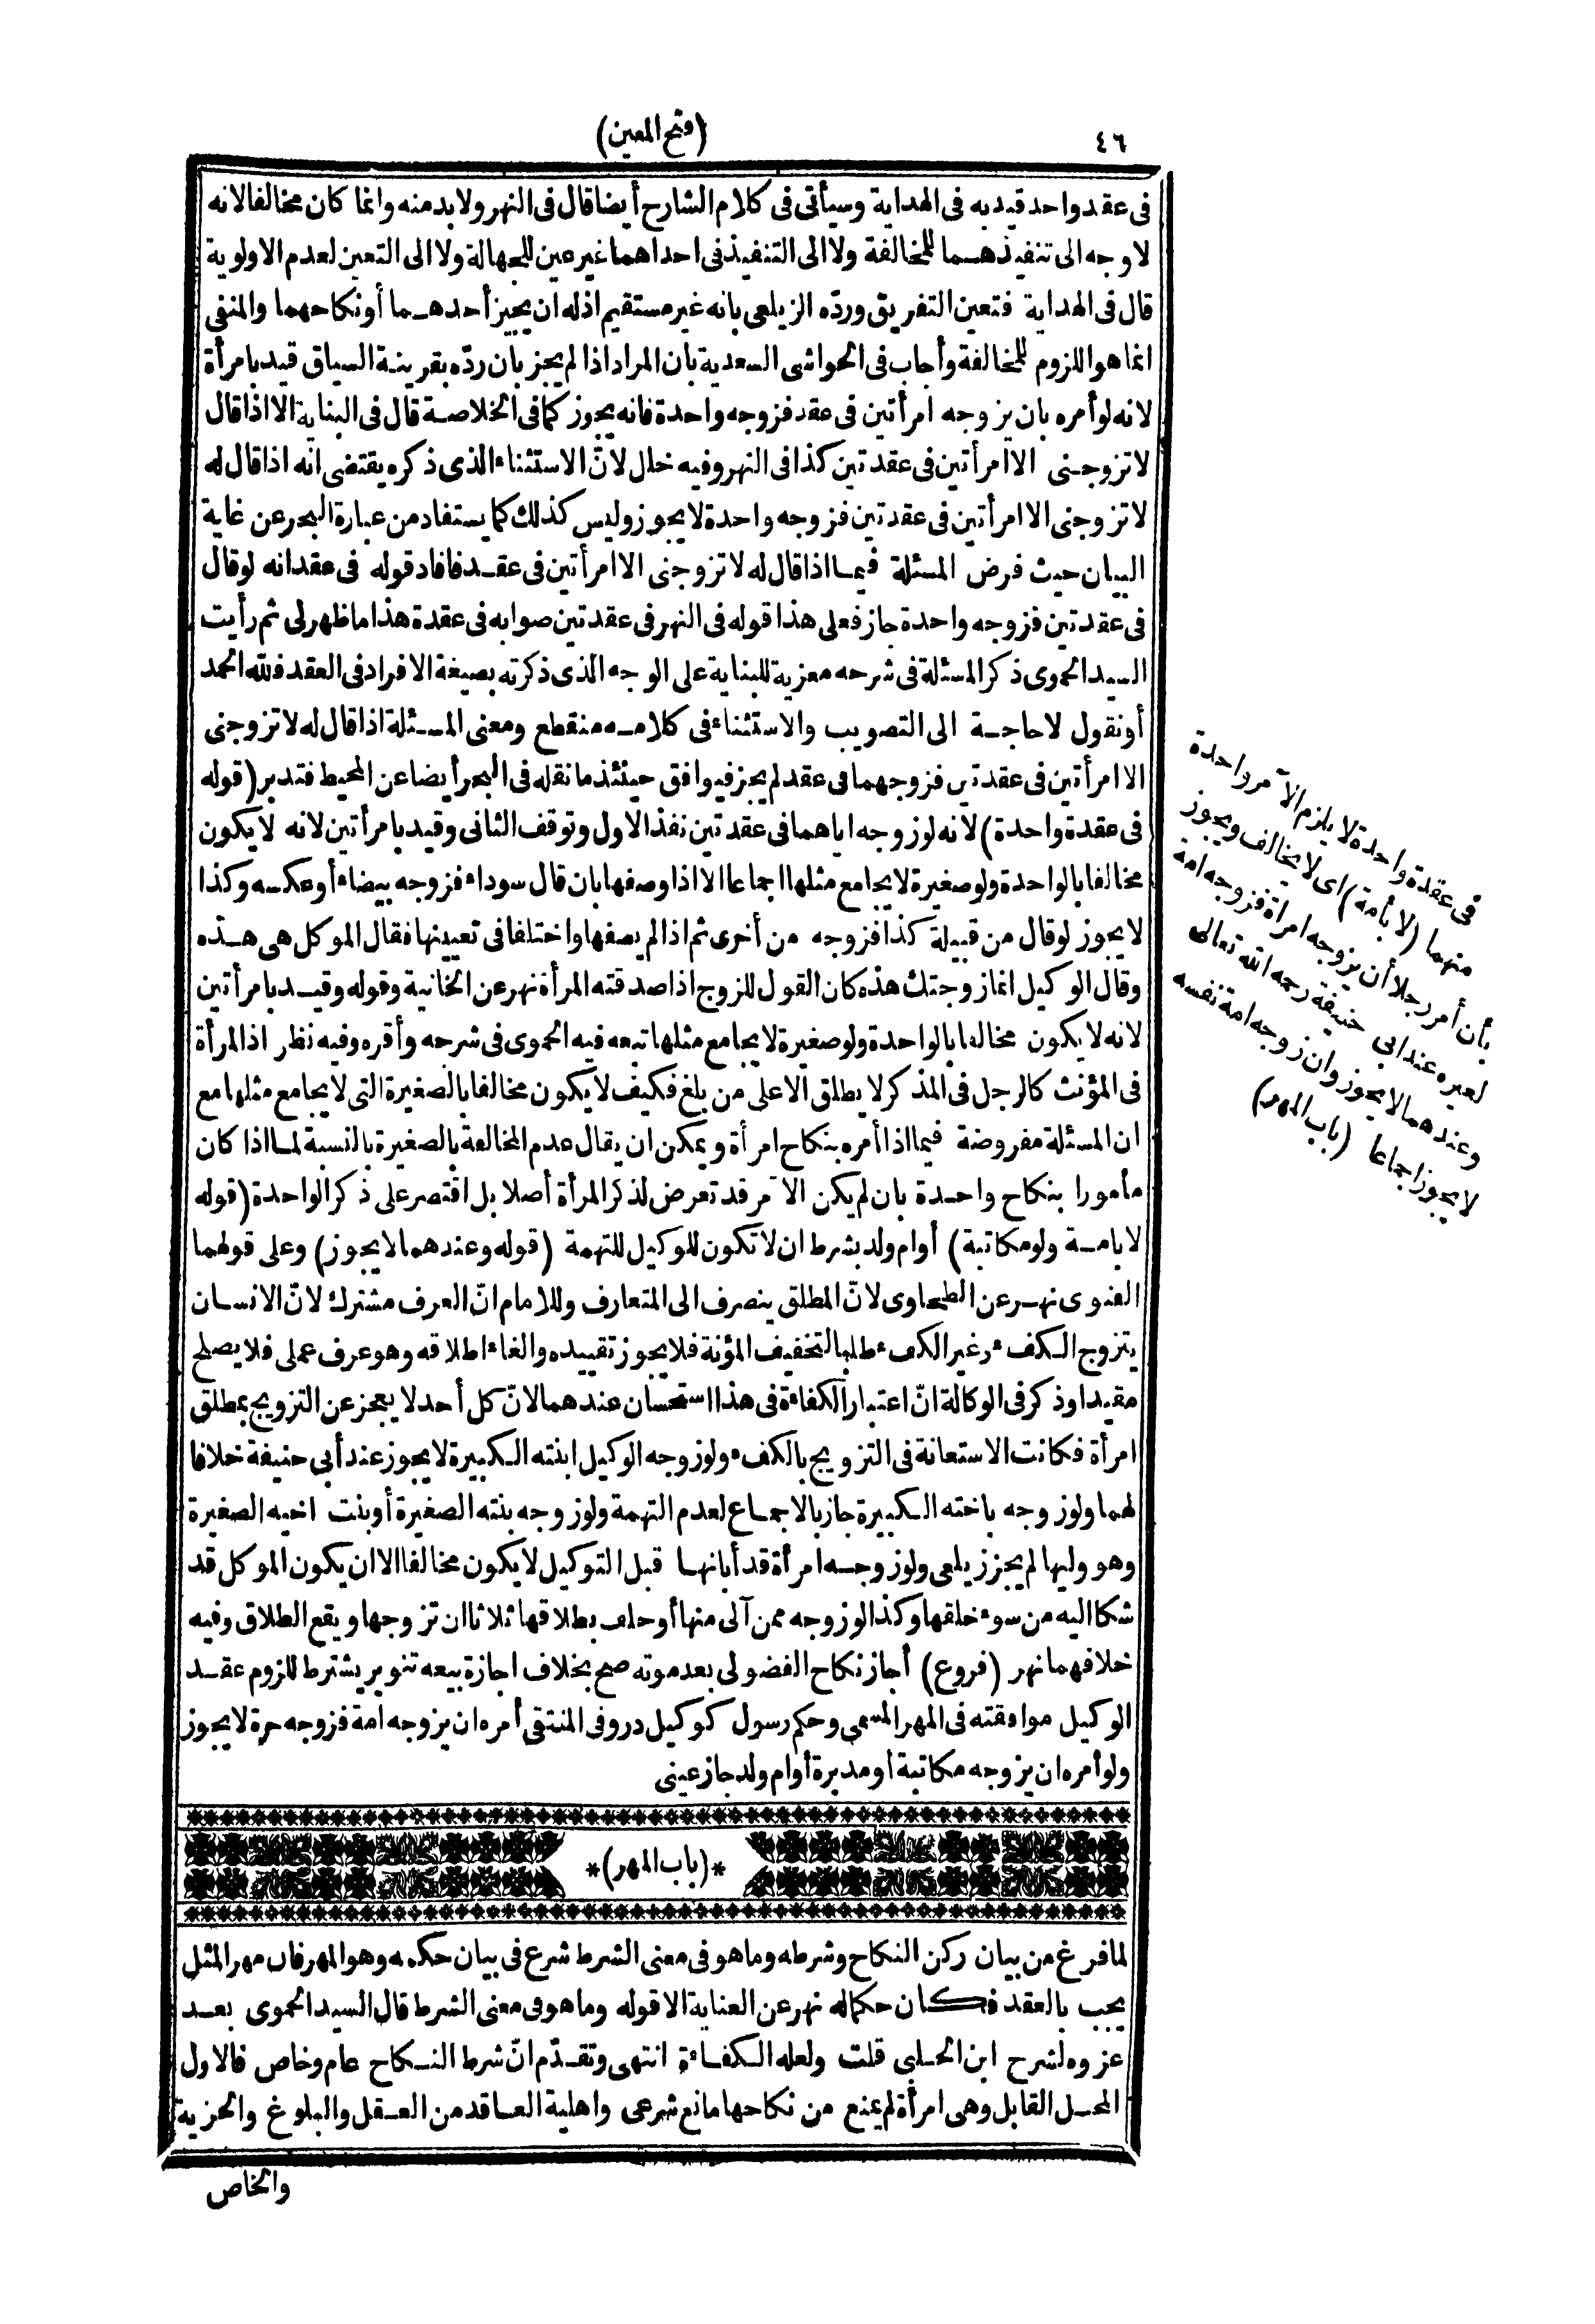 ٤٦
(فتح المعين)
فى عقد واحد قيد به فى الهداية وسيأتى فى كلام الشارح أيضا قال فى النهر ولا بد منه وانما كان مخالفا لانه
لا وجه الى تنفيذهما للمخالفة ولا الى التنفيذ فى احداهما غير عين للجهالة ولا الى التعيين لعدم الاولوية
قال فى الهداية فتعين التفريق وردّه الزيلعى بانه غير مستقيم اذ له ان يجيز أحدهما أو نكاحهما والمنفى
انما هو اللزوم للمخالفة وأجاب فى الحواشى السعدية بان المراد اذا لم يجز بأن ردّه بقرينة السياق قيد بامرأة
لانه لو أمره بان يزوجه امرأتين فى عقد فزوجه واحدة فانه يجوز كما فى الخلاصة قال فى البناية الا اذا قال
لا تزوجنى الا امرأتين فى عقدتين كذا فى النهر وفيه خلل لانّ الاستثناء الذى ذكره يقتضى انه اذا قال له
لا تزوجنى الا امرأتين فى عقدتين فزوجه واحدة لا يجوز وليس كذلك كما يستفاد من عبارة البحر عن غاية
البيان حيث فرض المسئلة فيما اذا قال له لا تزوجنى الا امرأتين فى عقد فافاد قوله فى عقد انه لو قال
فى عقدتين فزوجه واحدة جاز فعلى هذا قوله فى النهر فى عقدتين صوابه فى عقدة هذا ما ظهر لى ثم رأيت
السيد الحموى ذكر المسئلة فى شرحه معزية للبناية على الوجه الذى ذكرته بصيغة الافراد فى العقد فلله الحمد
أو نقول لا حاجة الى التصويب والاستثناء فى كلامه منقطع ومعنى المسئلة اذا قال له لا تزوجنى
الا امرأتين فى عقدتين فزوجهما فى عقد لم يجز فيوافق حينئذ ما نقله فى البحر أيضا عن المحيط فتدبر (قوله
فى عقدة واحدة) لانه لو زوجه اياهما فى عقدتين نفذ الاول وتوقف الثانى وقيد بامرأتين لانه لا يكون
مخالفا بالواحدة ولو صغيرة لا يجامع مثلها اجماعا الا اذا وصفها بان قال سوداء فزوجه بيضاء أو عكسه وكذا
لا يجوز لو قال من قبيلة كذا فزوجه من أخرى ثم اذا لم يصفها واختلفا فى تعيينها فقال الموكل هى هذه
وقال الوكيل انما زوجتك هذه كان القول للزوج اذا صدقته المرأة نهر عن الخانية وقوله وقيد بامرأتين
لانه لا يكون مخالفا بالواحدة ولو صغيرة لا يجامع مثلها تبعه فيه الحموى فى شرحه وأقره وفيه نظر اذ المرأة
فى المؤنث كالرجل فى المذكر لا يطلق الا على من بلغ فكيف لا يكون مخالفا بالصغيرة التى لا يجامع مثلها مع
ان المسئلة مفروضة فيما اذا أمره بنكاح امرأة ويمكن ان يقال عدم المخالفة بالصغيرة بالنسبة لما اذا كان
مأمورا بنكاح واحدة بان لم يكن الآمر قد تعرض لذكر المرأة أصلا بل اقتصر على ذكر الواحدة (قوله
لا بامة ولو مكاتبة) أو ام ولد بشرط ان لا تكون للوكيل للتهمة (قوله وعندهما لا يجوز) وعلى قولهما
الفتوى نهر عن الطحاوى لانّ المطلق ينصرف الى المتعارف وللامام انّ العرف مشترك لانّ الانسان
يتزوج الكفء وغير الكفء طلبا لتخفيف المؤنة فلا يجوز تقييده والغاء اطلاقه وهو عرف عملى فلا يصلح
مقيدا وذكر فى الوكالة انّ اعتبار الكفاءة فى هذا استحسان عندهما لانّ كل أحد لا يعجز عن التزويج بمطلق
امرأة فكانت الاستعانة فى التزويج بالكفء ولو زوجه الوكيل ابنته الكبيرة لا يجوز عند أبى حنيفة خلافا
لهما ولو زوجه باخته الكبيرة جاز بالاجماع لعدم التهمة ولو زوجه بنته الصغيرة أو بنت اخيه الصغيرة
وهو وليها لم يجز زيلعى ولو زوجه امرأة قد أبانها قبل التوكيل لا يكون مخالفا الا ان يكون الموكل قد
شكا اليه من سوء خلقها وكذا لو زوجه ممن آلى منها أو حلف بطلاقها ثلاثا ان تزوجها ويقع الطلاق وفيه
خلافهما نهر (فروع) أجاز نكاح الفضولى بعد موته صح بخلاف اجازة بيعه تنوير يشترط للزوم عقد
الوكيل موافقته فى المهر المسمى وحكم رسول كوكيل در وفى المنتقى أمره ان يزوجه امة فزوجه حرة لا يجوز
ولو أمره ان يزوجه مكاتبة أو مدبرة أو ام ولد جاز عينى
*(باب المهر)*
لما فرغ من بيان ركن النكاح وشرطه وما هو فى معنى الشرط شرع فى بيان حكمه وهو المهر فان مهر المثل
يجب بالعقد فكان حكما له نهر عن العناية الا قوله وما هو فى معنى الشرط قال السيد الحموى بعد
عزوه لشرح ابن الحلبى قلت ولعله الكفاءة انتهى وتقدّم انّ شرط النكاح عام وخاص فالاول
المحل القابل وهى امرأة لم يمنع من نكاحها مانع شرعى واهلية العاقد من العقل والبلوغ والحرية
والخاص
فى عقدة واحدة لا يلزم الآمر واحدة
منهما (لا بأمة) اى لا يخالف ويجوز
بأن أمر رجلا أن يزوجه امرأة فزوجه امة
لغيره عند ابى حنيفة رحمه الله تعالى
وعندهما لا يجوز وان زوجه امة نفسه
لا يجوز اجماعا (باب المهر)